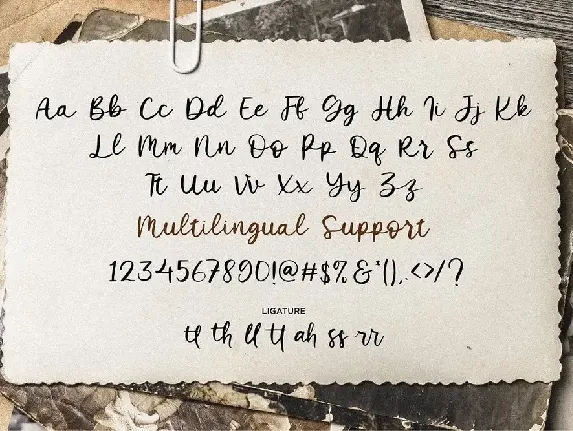 Aa Bb Cc Dd Ee Ff Gg Hh Ii Jj Kk
Ll Mm Nn Oo Pp Qq Rr Ss
Tt Uu Vv Xx Yy Zz
Multilingual Support
1234567890!@#$%&*(),.<>/?
LIGATURE
tl th ll tt ah ss rr